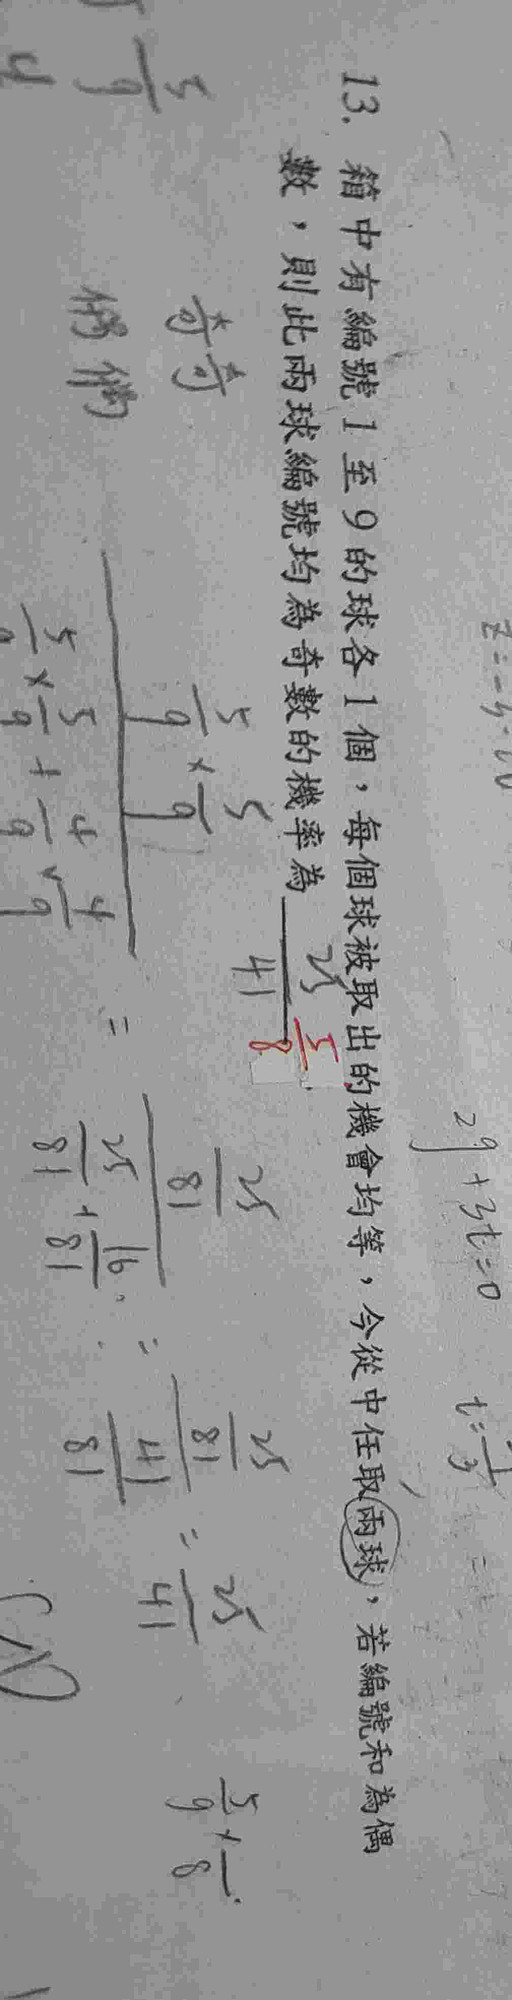 13. 箱中有編號 1 至 9 的球各 1 個，每個球被取出的機會均等，今從中任取兩球，若編號和為偶
數，則此兩球編號均為奇數的機率為 25/41 5/8 .
奇奇
偶偶
5/9
4
(5/9 × 5/9) / (5/9 × 5/9 + 4/9 × 4/9) = (25/81) / (25/81 + 16/81) = (25/81) / (41/81) = 25/41
5/9 × /8
+ 3t = 0